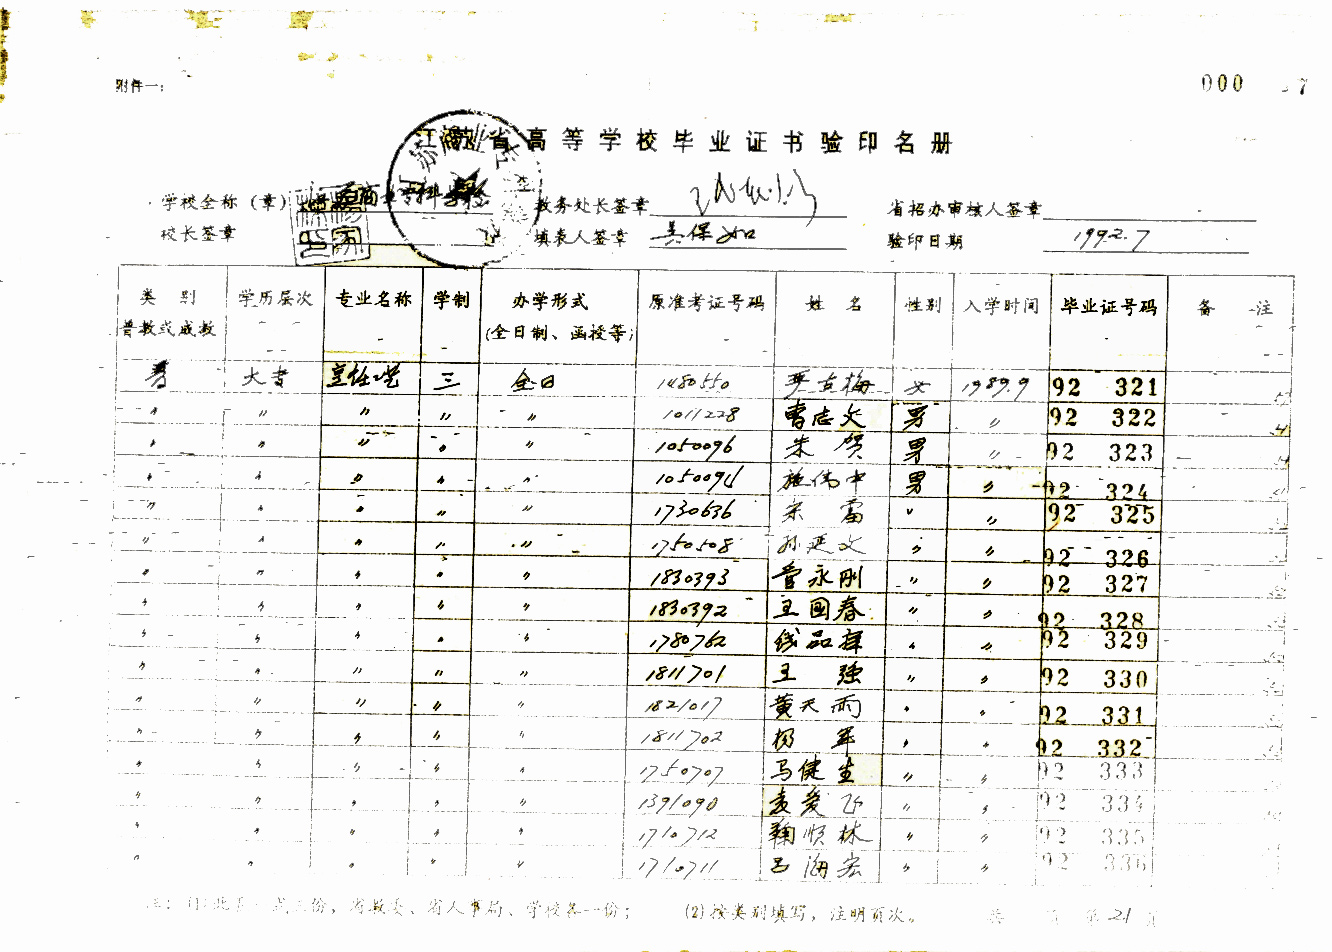 附件一:
000 7
江苏省高等学校毕业证书验印名册
学校全称（章） 商业专科学校 教务处长签章 省招办审核人签章
校长签章 填表人签章 吴保如 验印日期 1992.7
类别 学历层次 专业名称 学制 办学形式 原准考证号码 姓名 性别 入学时间 毕业证号码 备注
普教或成教 (全日制、函授等)
普 大专 烹饪工艺 三 全日 1480550 梅 女 1989.9 92 321
〃 〃 〃 〃 〃 1011228 曹志文 男 〃 92 322
〃 〃 〃 〃 〃 1050096 朱贺 男 〃 92 323
〃 〃 〃 〃 〃 1050094 施伟中 男 〃 92 324
〃 〃 〃 〃 〃 1730636 宋雷 〃 〃 92 325
〃 〃 〃 〃 〃 1750508 孙延文 〃 〃 92 326
〃 〃 〃 〃 〃 1830393 管永刚 〃 〃 92 327
〃 〃 〃 〃 〃 1830392 王国春 〃 〃 92 328
〃 〃 〃 〃 〃 1780762 钱品辉 〃 〃 92 329
〃 〃 〃 〃 〃 1811701 王强 〃 〃 92 330
〃 〃 〃 〃 〃 1821017 黄天雨 〃 〃 92 331
〃 〃 〃 〃 〃 1811702 杨军 〃 〃 92 332
〃 〃 〃 〃 〃 1750707 马健生 〃 〃 92 333
〃 〃 〃 〃 〃 1391090 爱飞 〃 〃 92 334
〃 〃 〃 〃 〃 1710712 鞠顺林 〃 〃 92 335
〃 〃 〃 〃 〃 1710711 吕海宏 〃 〃 92 336
注: (1)此表一式三份，省教委、省人事局、学校各一份; (2)按类别填写，注明页次。 共 页 第21页